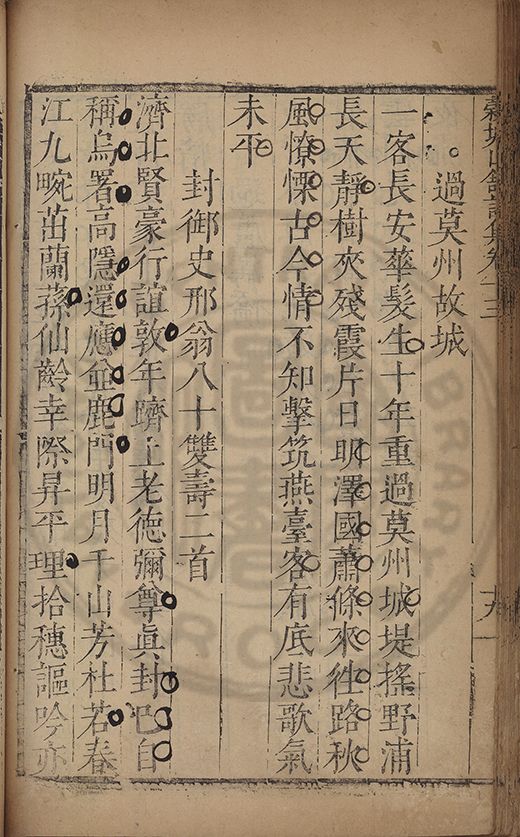 穀城山館詩集卷十三
過莫州故城
一客長安華髮生十年重過莫州城堤搖野浦
長天靜樹夾殘霞片日明澤國蕭條來往路秋
風憭慄古今情不知擊筑燕臺客有底悲歌氣
未平
封御史邢翁八十雙壽二首
濟北賢豪行誼敦年躋上老德彌尊眞封已自
稱烏署高隱還應並鹿門明月千山芳杜若春
江九畹茁蘭蓀仙齡幸際昇平理拾穗謳吟亦